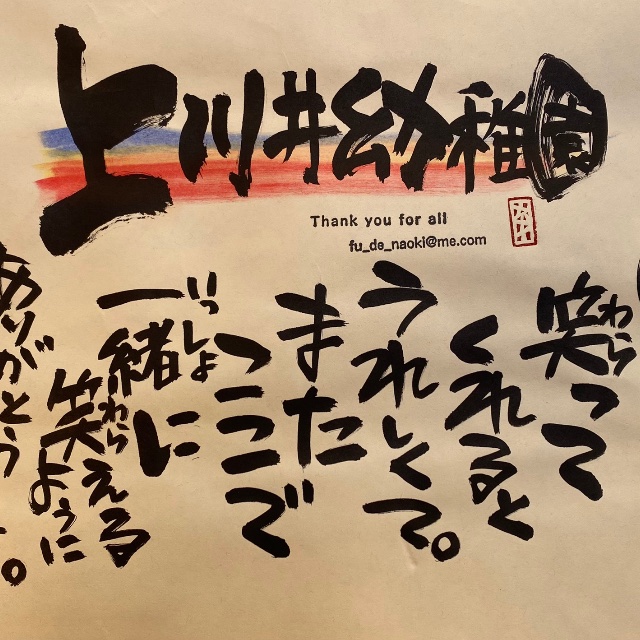 上川井幼稚園
Thank you for all
fu_de_naoki@me.com
笑って
わら
くれると
うれしくて。
また
ここで
一緒に
いっしょ
笑える
わら
ように
ありがとう